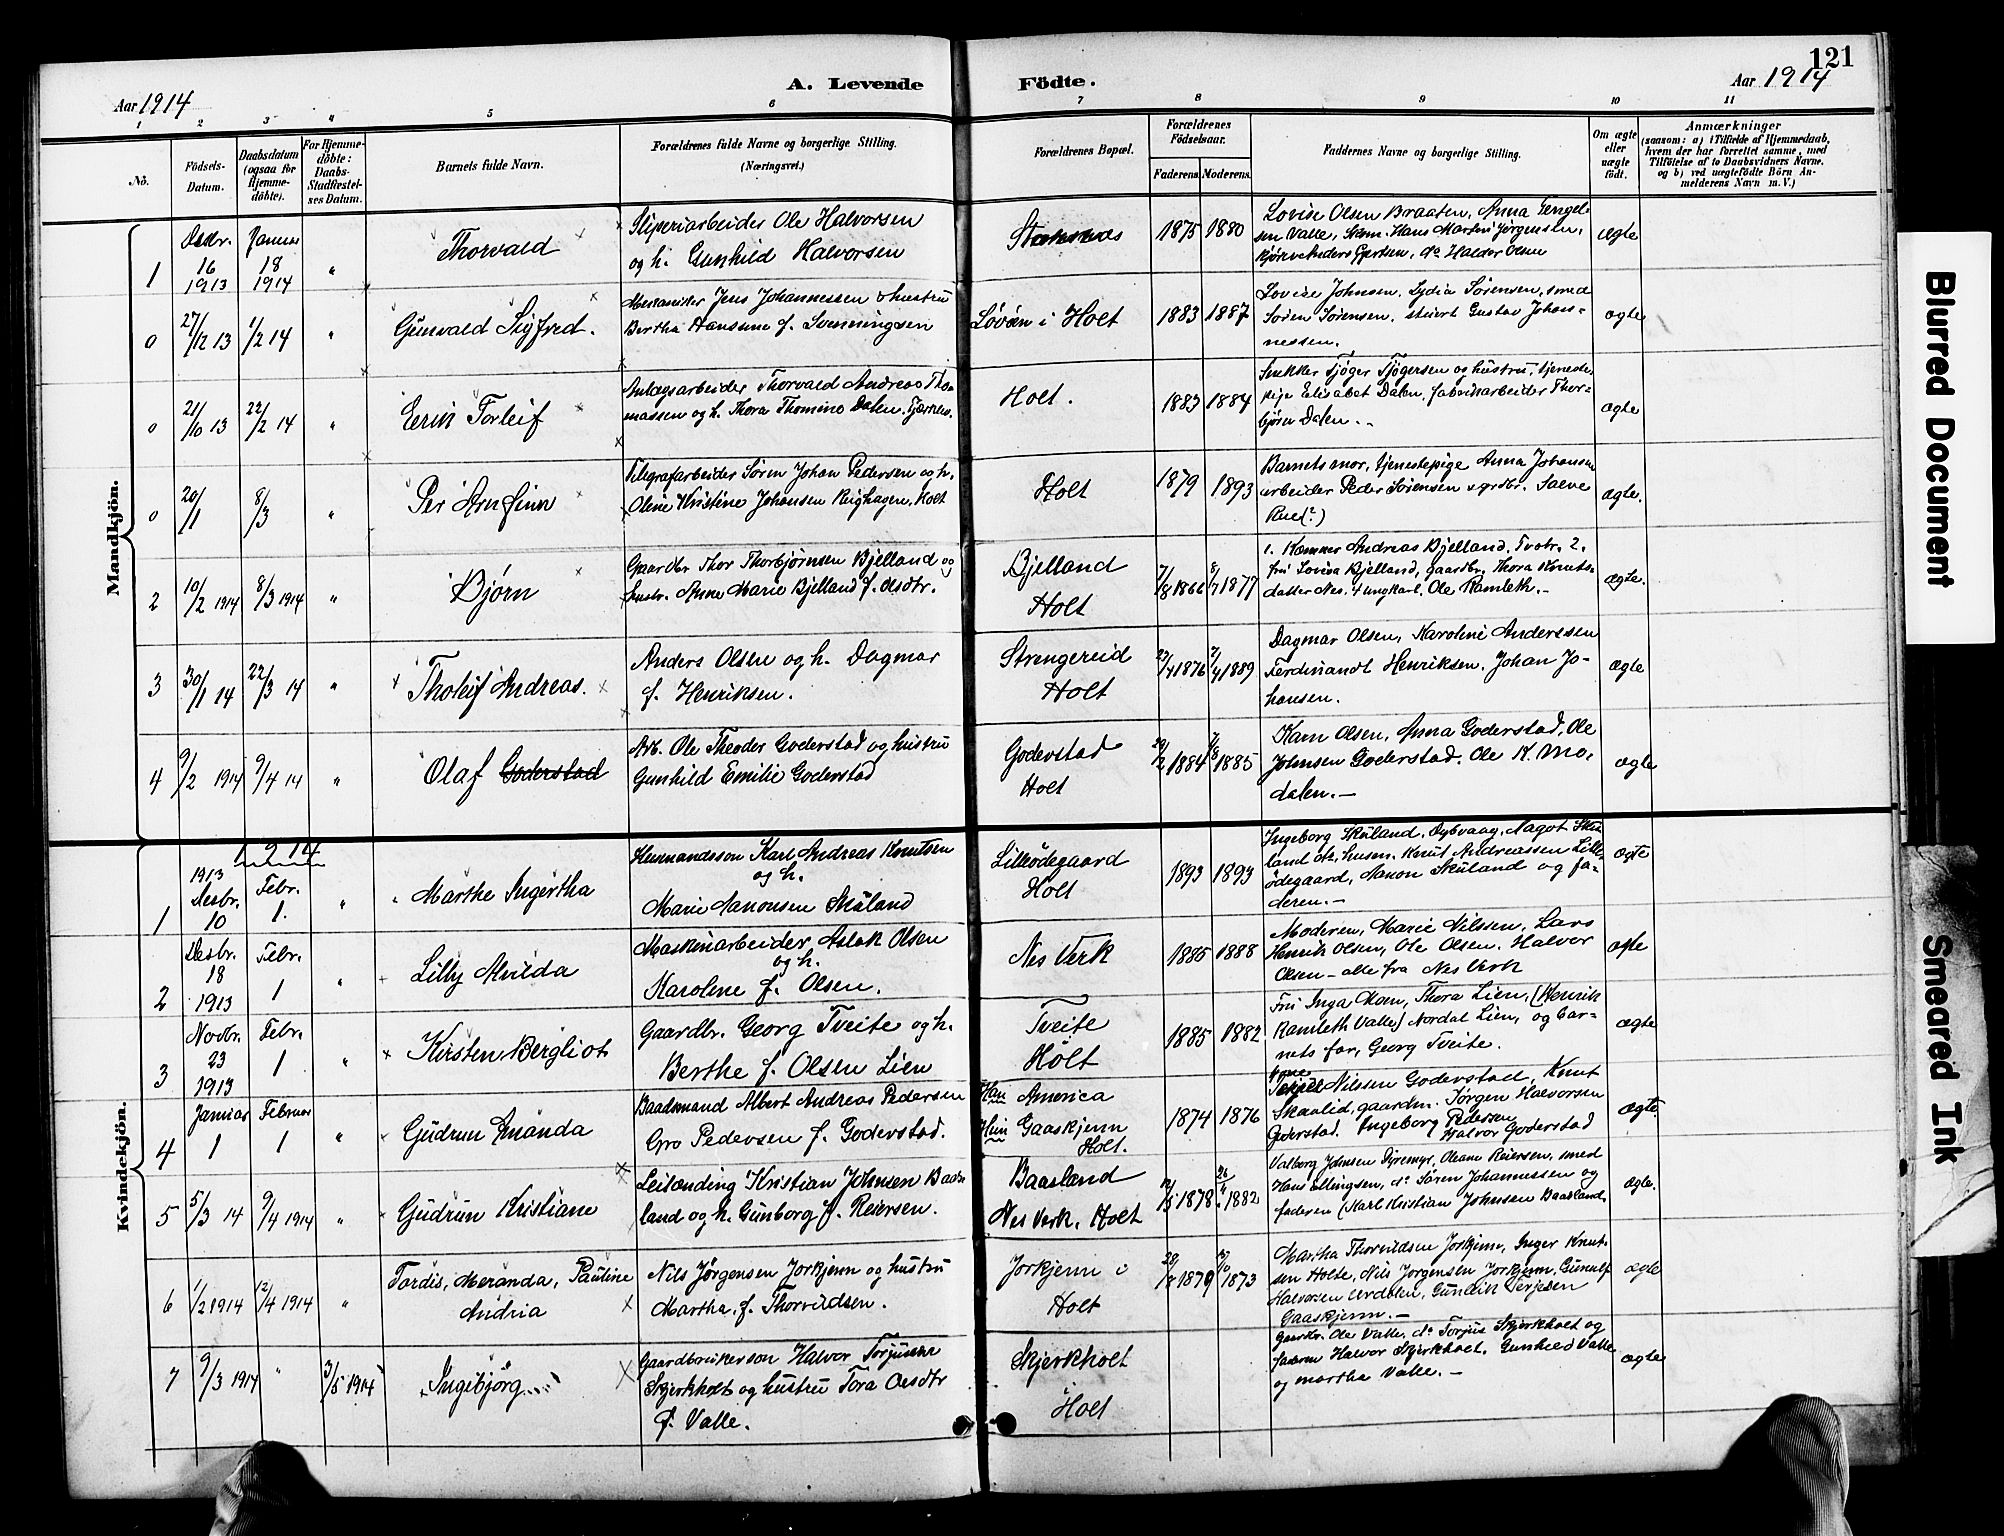 121
A. Levende Födte.
Aar 1914
Aar 1914
1 2 3 " 5 6 7 8 9 10 11
No.
Födsels-Datum.
Daabsdatum (ogsaa for Hjemmedöbte).
For Hjemmedöbte: Daabs-Stadfæstelses Datum.
Barnets fulde Navn.
Forældrenes fulde Navne og borgerlige Stilling.
(Næringsvei.)
Forældrenes Bopæl.
Forældrenes Födselsaar.
Faderens. Moderens.
Faddernes Navne og borgerlige Stilling.
Om ægte eller uægte födt.
Anmærkninger
(saasom: a) i Tilfælde af Hjemmedaab, hvem der har forrettet samme, med Tilföielse af to Daabsvidners Navne, og b) ved uægtefödte Börn Anmelderens Navn m. V.)
Mandkjön.
1 Desbr. 16 1913 Januar 18 1914 " Thorvald
Sliperiarbeider Ole Halvorsen
og h. Gunhild Halvorsen
1875 1880
Lovise Olsen Braaten, Anna Engel-
sen Valle, Hans Martin Jørgensen,
Anders Gjertsen, do Haldor Olsen
ægte
0 27/12 13 1/2 14 " Gunvald Sigfred.
Jens Johannessen & hustru
Bertha Hansine f. Svenningsen
i Holt 1883 1887
Lovise Johnsen, Lydia Sørensen, smed
Søren Sørensen, stuert Gustav Johan-
nessen.
ægte
0 21/10 13 22/2 14 " Torleif
Anlægsarbeider Thorvald Andreas Tho-
massen og h. Thora Thomine Dalen,
Holt. 1883 1884
Snekker Tjøger Tjøgersen og hustru, tjeneste-
pige Elisabet Dalen, fabrikarbeider Thor-
björn Dalen.
ægte
0 20/1 8/3 " Per Arnfinn
Telegrafarbeider Søren Johan Pedersen og h.
Oline Kristine Johansen Holt
Holt 1879 1893
Barnets mor, tjenestepige Anna Johansen
arbeider Peder Sørensen
Rue(?)
ægte.
2 10/2 1914 8/3 1914 " Bjørn
Gaardbr Thor Thorbjørnsen Bjelland og
hustr. Anne Marie Bjelland f. Olsdtr.
Bjelland
Holt
7/8 1866 8/7 1877
1. Andreas Bjelland, Tvetr. 2.
fru Lovisa Bjelland, gaardbr. Thora Knuts-
datter Nes, 4 ungkarl. Ole Ramleth.-
ægte.
3 30/1 14 22/3 14 " Tholeif Andreas.
Anders Olsen og h. Dagmar
f. Henriksen.
Strengereid
Holt
23/4 1876 1889
Dagmar Olsen, Karoline Anderssen
Ferdinandt Henriksen, Johan Jo-
hansen.
ægte
4 9/2 1914 9/4 14 " Olaf Goderstad
Arb. Ole Theodor Goderstad og hustru
Gunhild Emilie Goderstad
Goderstad
Holt
29/2 1884 7/8 1885
Karn Olsen, Anna Goderstad, Ole
Johnsen Goderstad, Ole K. Mo-
dalen.-
ægte
Kvindekjön.
1914
1 1913 Desbr. 10 Febr. 1. " Marthe Ingertha
Karl Andreas Knutsen
og h.
Marie Aanonsen Skuland
Lilleødegaard
Holt
1893 1893
Ingeborg Skuland, Dybvaag, Nagot Sku-
land do, husm. Knut Andreassen Lille-
ødegaard, Aanon Skuland og fa-
deren.-
ægte
2 Desbr. 18 1913 Febr. 1 " Lilly Alvilda
Maskinarbeider, Aslak Olsen
og h.
Karoline f. Olsen.
Nes Verk 1885 1888
Moderen, Marie Nilssen, Lars
Henrik Olsen, Ole Olsen, Halvor
Olsen - alle fra Nes Verk
ægte
3 Novbr. 23 1913 Febr. 1 " Kirsten Bergliot
Gaardbr. Georg Tveite og h.
Berthe f. Olsen Lien
Tveite
Holt
1885 1882
Fru Inga Mom, Thora Lien, (Henrik
Ramleth Valle) Nordal Lien, og bar-
nets far, Georg Tveite.
ægte
4 Januar 1 Februar 1 " Gudrun Amanda
Baadsmand Albert Andreas Pedersen
Gro Pedersen f. Goderstad.
Han America
Hun Gaaskjenn
Holt.
1874 1876
Nilssen Goderstad, Knut
Skaalid, gaardm. Jörgen Halvorsen
Goderstad. Ingeborg Pedersen
Halvor Goderstad
ægte
5 5/3 14 9/4 1914 " Gudrun Kristiane
Leilænding Kristian Johnsen Baas-
land og h. Gunborg f. Reiersen.
Baasland
Nes Verk, Holt
12/5 1878 26/4 1882
Valborg Johnsen Dyremyr, Oleane Reiersen, smed
Hans Ellingsen, do Søren Johannessen og
faderen (Karl Kristian Johnsen Baasland.
ægte.
6 1/2 1914 12/4 1914 " Tordis, Meranda, Pauline
Andria
Nils Jørgensen Jorkjenn og hustru
Martha, f. Thorvildsen.
Jorkjenn i
Holt
28/8 1879 1873
Martha Thorvildsen Jorkjenn, Inger Knut-
sen Holte, Nils Jørgensen Jorkjenn, Gunulf
Halvorsen Urdalen, Gunvik Terjesen
Gaaskjenn.-
ægte
7 9/3 1914 " 3/5 1914 Ingebjörg
Gaardbrukersøn Halvor Torjussen
Skjerkholt og hustru Tora Olsdtr
f. Valle.
Skjerkholt
Holt
Gardbr. Ole Valle, do Torjus Skjerkholt og
faderen Halvor Skjerkholt, Gunhild Valle
og Martha Valle.-
ægte
Blurred Document
Smeared Ink